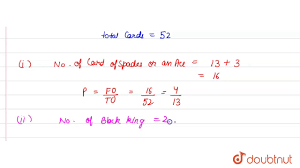 total Cards = 52
(i) No. of Card of Spades or an Ace = 13 + 3
= 16
P = FO/TO = 16/52 = 4/13
(ii) No. of Black king = 20.
doubtnut